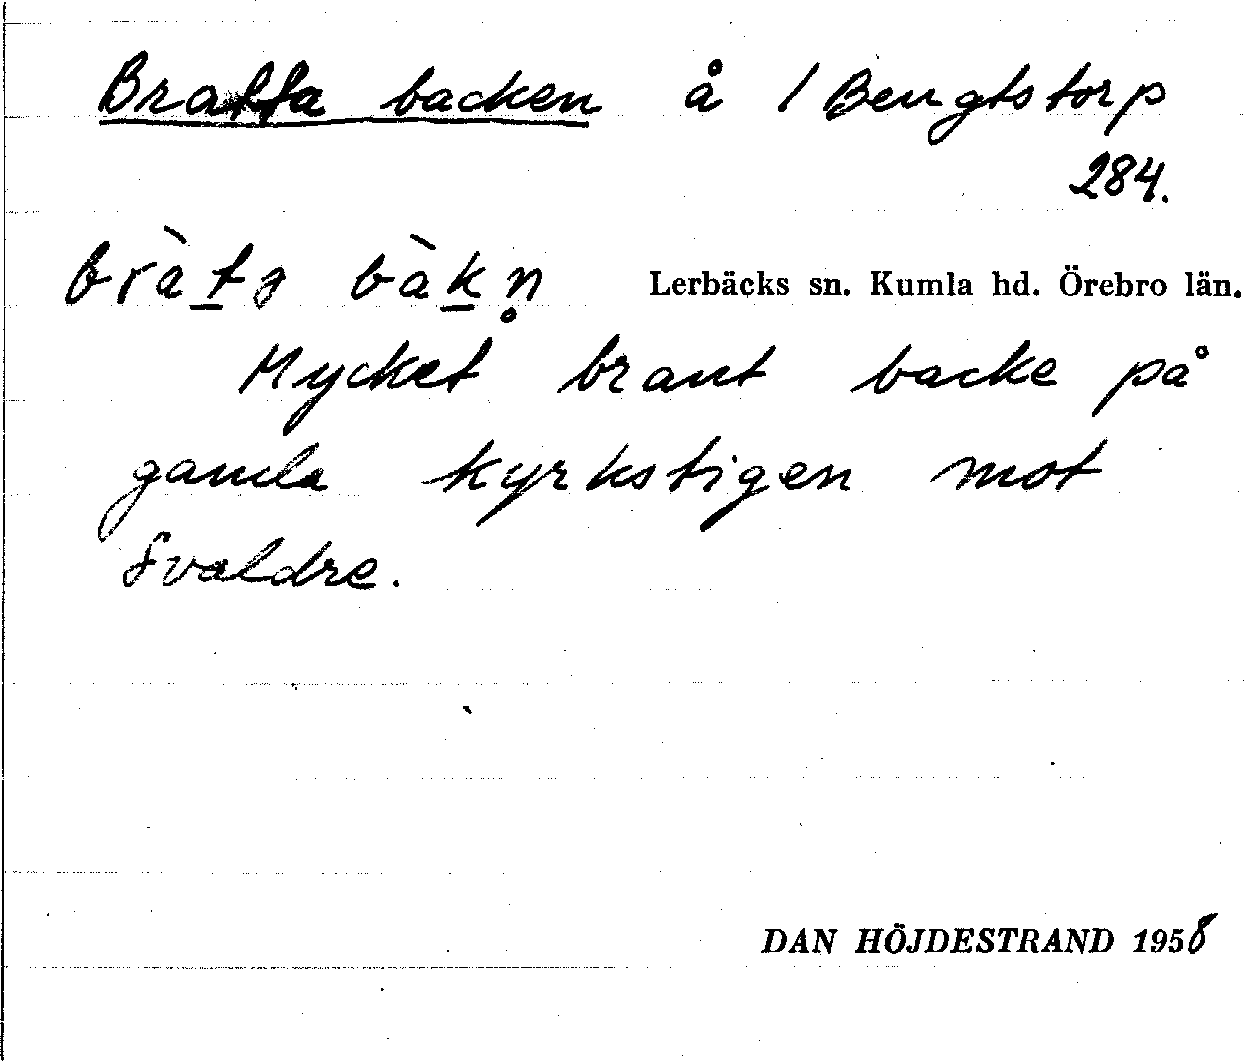 Bratta backen å 1 Bengtstorp
284.
bràt̲a bàk̲n̥ Lerbäcks sn. Kumla hd. Örebro län.
Mycket brant backe på
gamla kyrkstigen mot
Svaldre.
DAN HÖJDESTRAND 1958